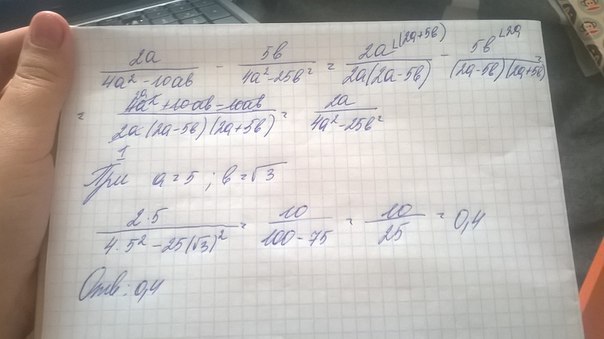 2a/(4a² - 10ab) - 5b/(4a² - 25b²) = 2a ⌊(2a+5b)/(2a(2a-5b)) - 5b ⌊2a/((2a-5b)(2a+5b)) =
= (4a² + 10ab - 10ab)/(2a(2a-5b)(2a+5b)) = 2a/(4a² - 25b²)
При a=5; b=√3
2·5/(4·5² - 25(√3)²) = 10/(100-75) = 10/25 = 0,4
Отв: 0,4